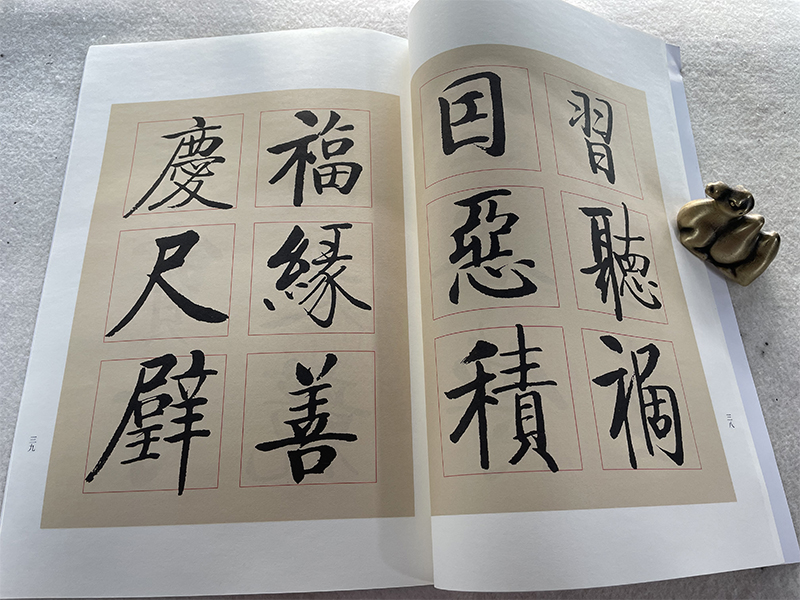 習聽禍
囙惡積
三八
福緣善
慶尺璧
三九